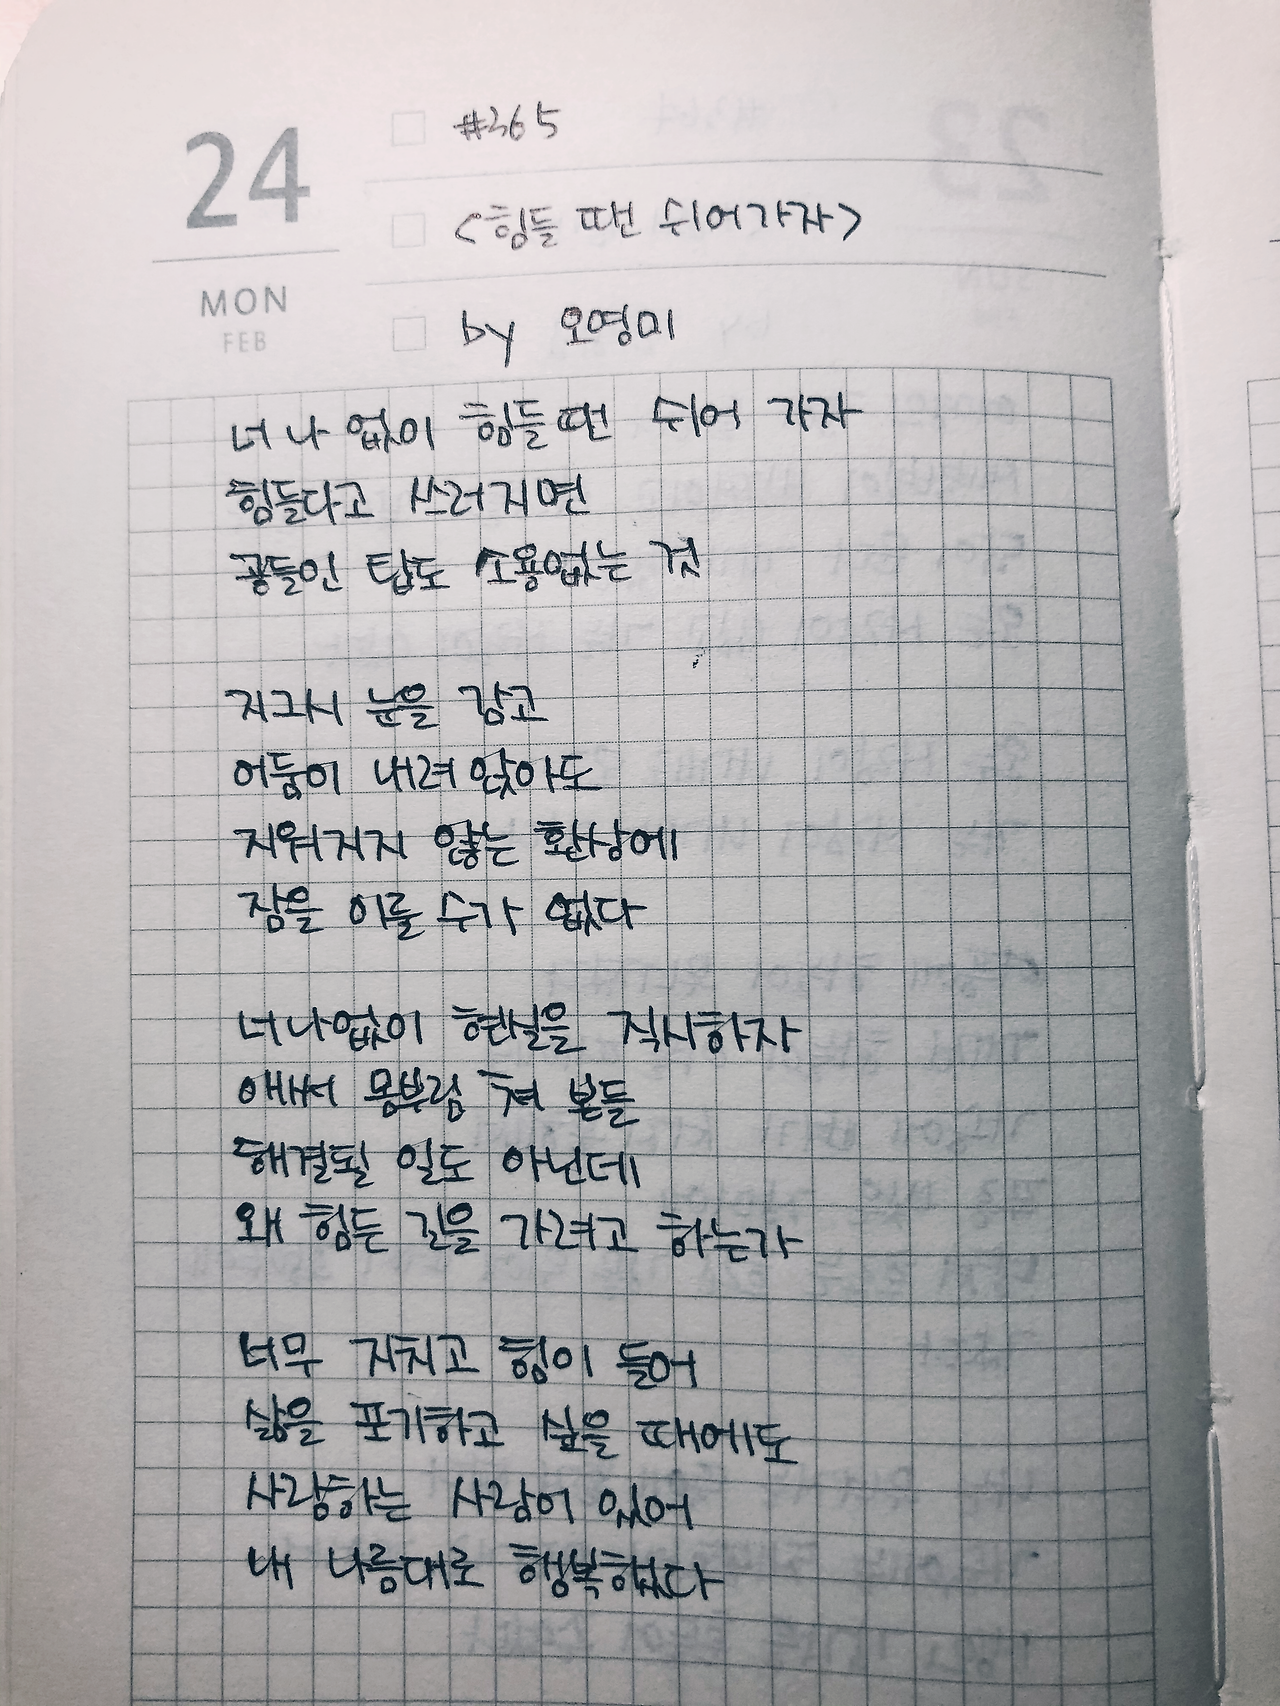 24
MON
FEB
#365
<힘들 땐 쉬어가자>
by 오영미
너 나 없이 힘들 땐 쉬어 가자
힘들다고 쓰러지면
공들인 탑도 소용없는 것
지그시 눈을 감고
어둠이 내려 앉아도
지워지지 않는 환상에
잠을 이룰 수가 없다
너나없이 현실을 직시하자
애써 몸부림 쳐 본들
해결될 일도 아닌데
왜 힘든 길을 가려고 하는가
너무 지치고 힘이 들어
삶을 포기하고 싶을 때에도
사랑하는 사람이 있어
내 나름대로 행복했다